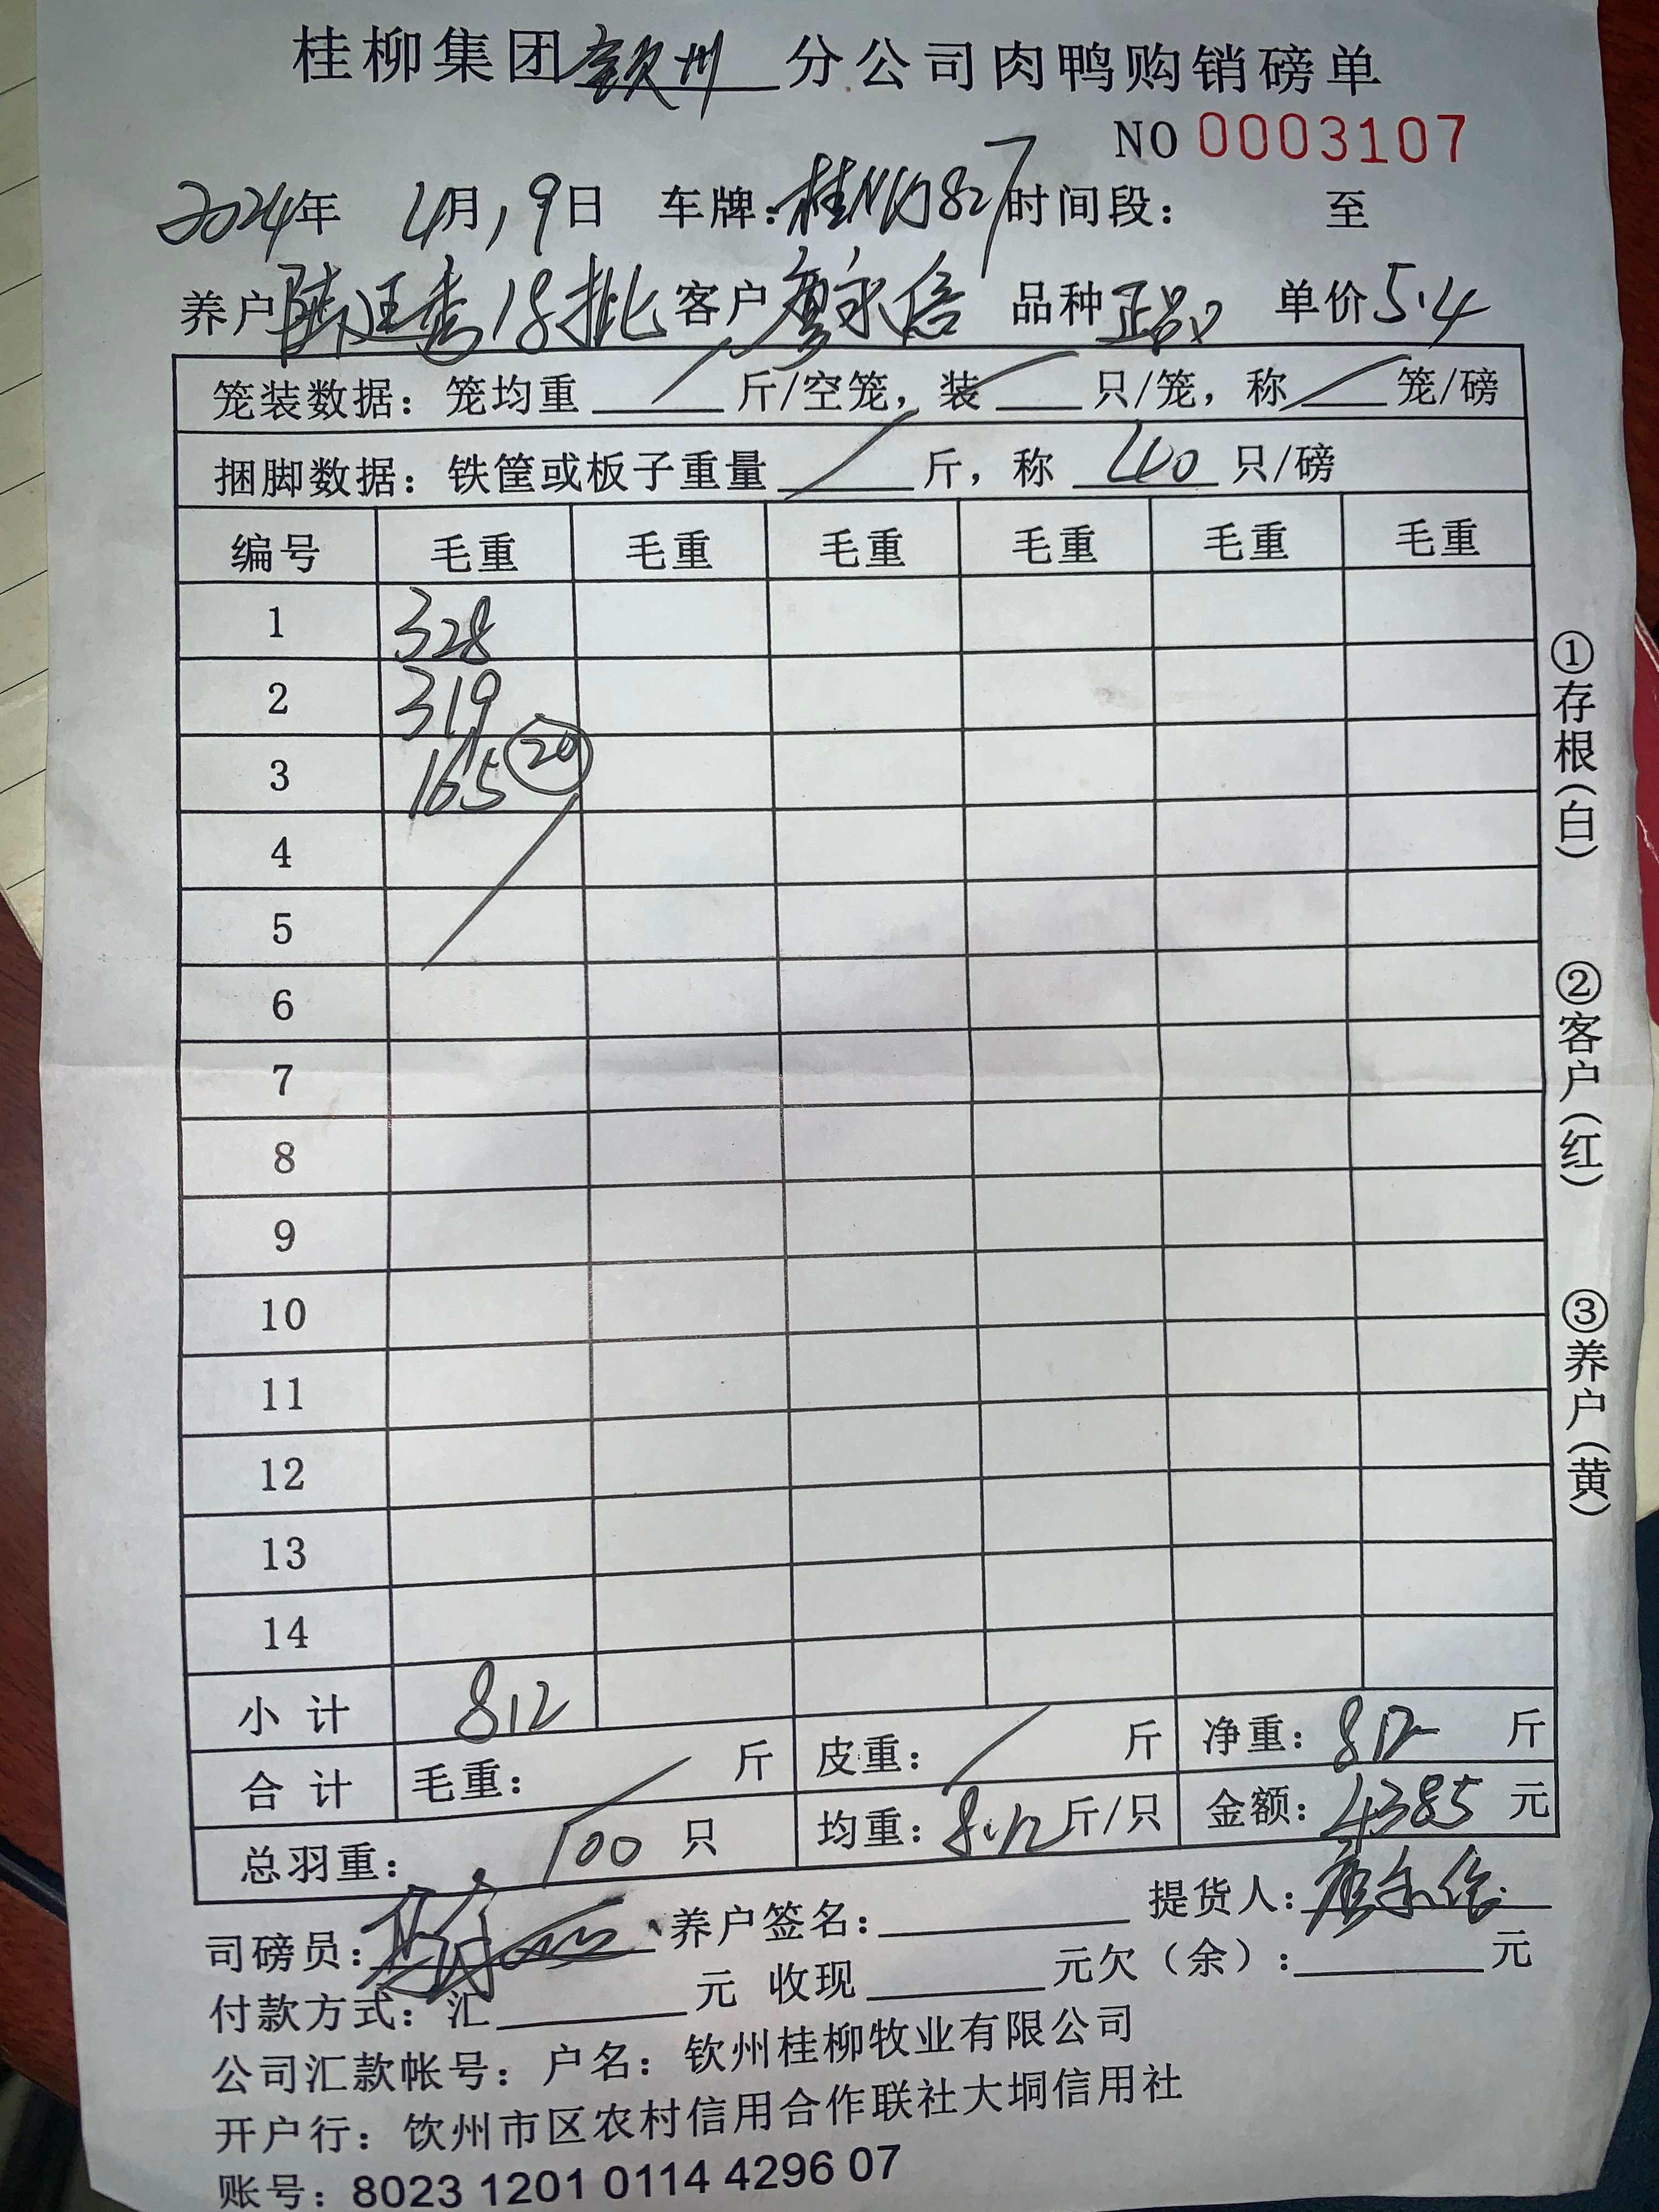 桂柳集团钦州分公司肉鸭购销磅单
NO 0003107
2024年 4月19日 车牌: 时间段: 至
养户 18批 客户廖永信 品种正品 单价5.4
笼装数据: 笼均重 / 斤/空笼, 装 / 只/笼, 称 / 笼/磅
捆脚数据: 铁筐或板子重量 / 斤, 称 40 只/磅
编号 毛重 毛重 毛重 毛重 毛重 毛重
1 328
2 319
3 165 20
4
5
6
7
8
9
10
11
12
13
14
小计 812
合计 毛重: / 斤 皮重: / 斤 净重: 812 斤
总羽重: 100 只 均重: 8.12 斤/只 金额: 4385 元
司磅员: 养户签名: 提货人: 廖永信
付款方式: 汇 元 收现 元欠(余): 元
公司汇款帐号: 户名: 钦州桂柳牧业有限公司
开户行: 钦州市区农村信用合作联社大垌信用社
账号: 8023 1201 0114 4296 07
①存根(白) ②客户(红) ③养户(黄)